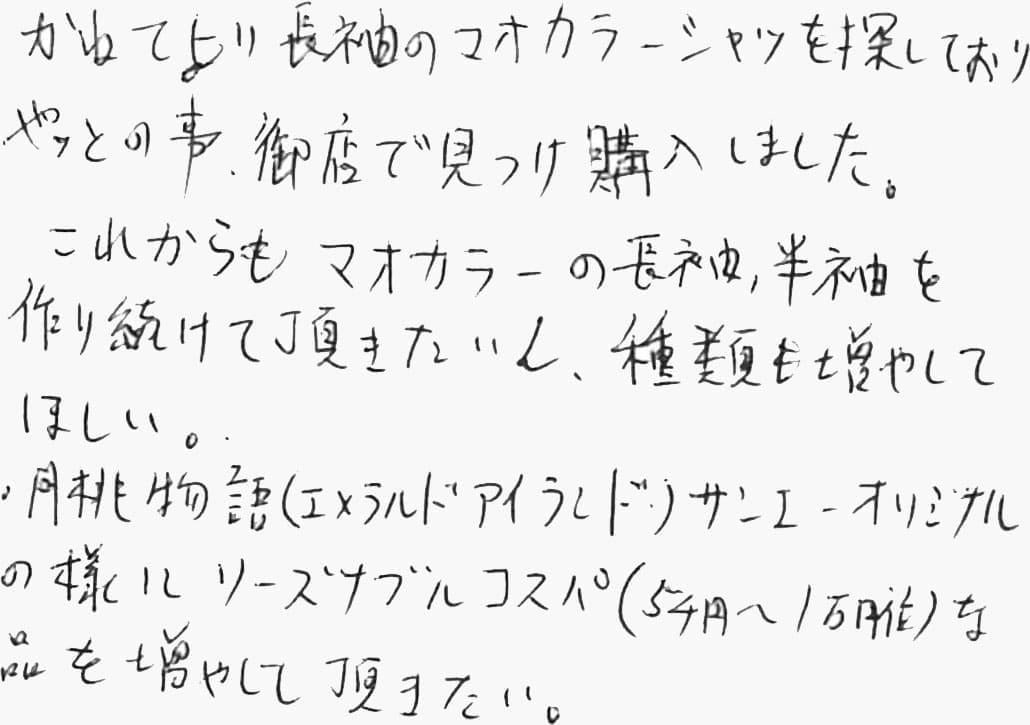 かねてより長袖のマオカラーシャツを探しており
やっとの事、御店で見つけ購入しました。
これからもマオカラーの長袖,半袖を
作り続けて頂きたいし、種類も増やして
ほしい。
・月桃物語(エメラルドアイランド)サンエーオリジナル
の様に リーズナブルコスパ(5千円〜1万円位)な
品を増やして頂きたい。